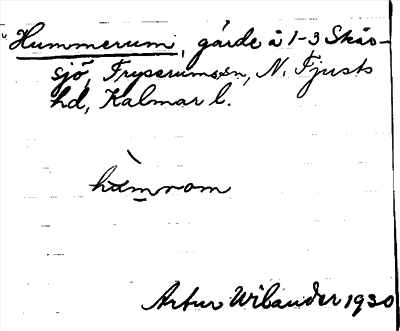 Hummerum, gärde å 1-3 Skår-
sjö, Fryserums sn, N. Tjusts
hd, Kalmar l.
hùmrom
Artur Wilander 1930